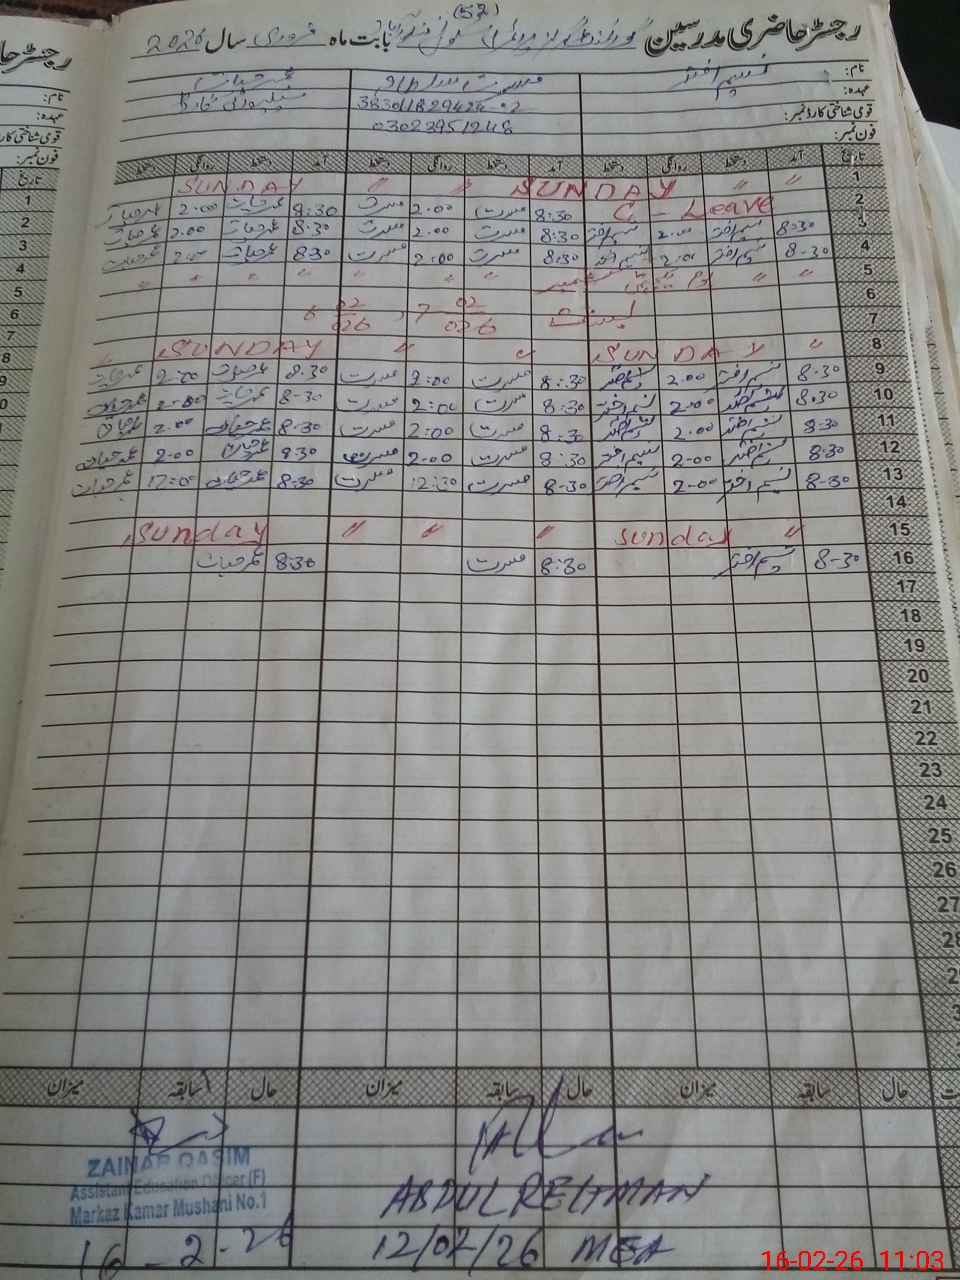 (52)
رجسٹر حاضری مدرسین گورنمنٹ گرلز پرائمری سکول بابت ماہ فروری سال 2026
نام: نسیم اختر مسرت عمر حیات
عہدہ:
قومی شناختی کارڈ نمبر: 383011829424-02
فون نمبر: 03023951248
تاریخ آمد دستخط روانگی دستخط آمد دستخط روانگی دستخط آمد دستخط روانگی دستخط
1 " " SUNDAY " " SUNDAY
2 C - Leave 8:30 مسرت 2.00 مسرت 8:30 عمرحیات 2.00 عمرحیات
3 8:30 نسیم اختر 2.00 نسیم اختر 8:30 مسرت 2.00 مسرت 8-30 عمرحیات 2.00 عمرحیات
4 8-30 نسیم اختر 2.00 نسیم اختر 8:30 مسرت 2:00 مسرت 8.30 عمرحیات 2.00 عمرحیات
5 " " یوم یکجہتی کشمیر " " " " " "
6
7 02 02
7 6
026 026
8 " SUNDAY " " SUNDAY "
9 8-30 نسیم اختر 2.00 نسیم اختر 8:30 مسرت 2:00 مسرت 8.30 عمرحیات 2:00 عمرحیات
10 8:30 نسیم اختر 2.00 نسیم اختر 8:30 مسرت 2:00 مسرت 8-30 عمرحیات 2-00 عمرحیات
11 8:30 نسیم اختر 2.00 نسیم اختر 8:30 مسرت 2:00 مسرت 8-30 عمرحیات 2.00 عمرحیات
12 8:30 نسیم اختر 2-00 نسیم اختر 8:30 مسرت 2-00 مسرت 8:30 عمرحیات 2-00 عمرحیات
13 8-30 نسیم اختر 2-00 نسیم اختر 8-30 مسرت 12:30 مسرت 8-30 عمرحیات 12:00 عمرحیات
14
15 " sunday " " " sunday
16 8-30 نسیم اختر 8:30 مسرت 8:30 عمرحیات
17
18
19
20
21
22
23
24
25
26
27
28
حال سابقہ میزان حال سابقہ میزان حال سابقہ میزان
ZAINAB QASIM
Assistant Education Officer (F)
Markaz Kamar Mushani No.1
16-2-26
ABDUL REHMAN
12/02/26 MEA
رجسٹر حا
نام:
عہدہ:
قومی شناختی کارڈ
فون نمبر:
تاریخ
1
2
3
4
5
6
7
8
9
0
16-02-26 11:03